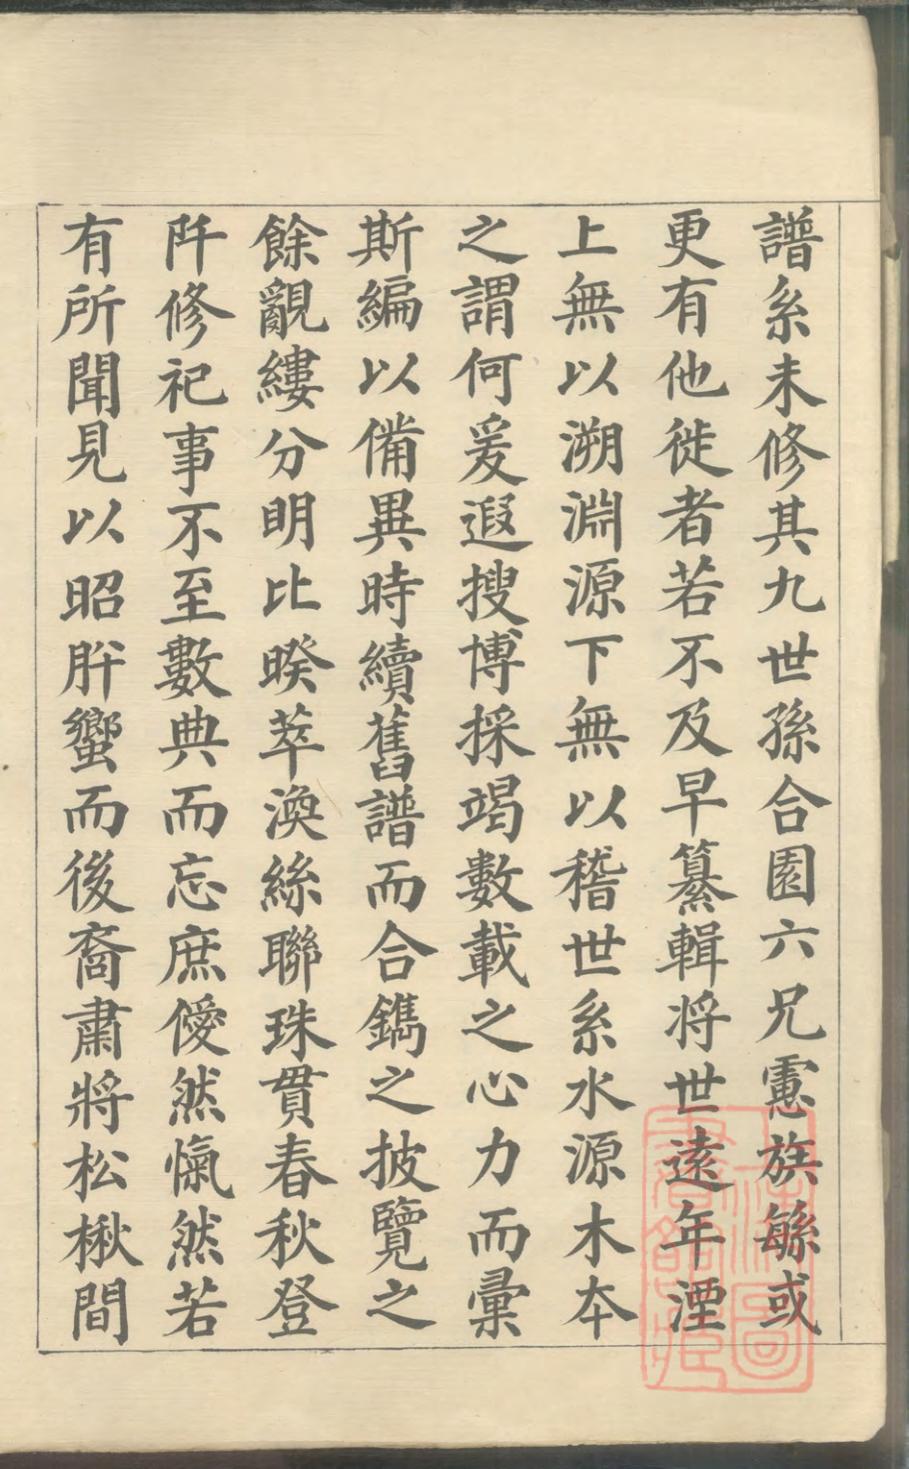 譜系未修其九世孫合園六兄慮族緐或
更有他徙者若不及早纂輯將世逺年湮
上無以溯淵源下無以稽世系水源木本
之謂何爰遐搜博採竭數載之心力而彙
斯編以備異時續舊譜而合鐫之披覽之
餘覼縷分明比暌萃渙絲聯珠貫春秋登
阡修祀事不至數典而忘庶僾然愾然若
有所聞見以昭肸蠁而後裔肅將松楸間
上海圖書館藏